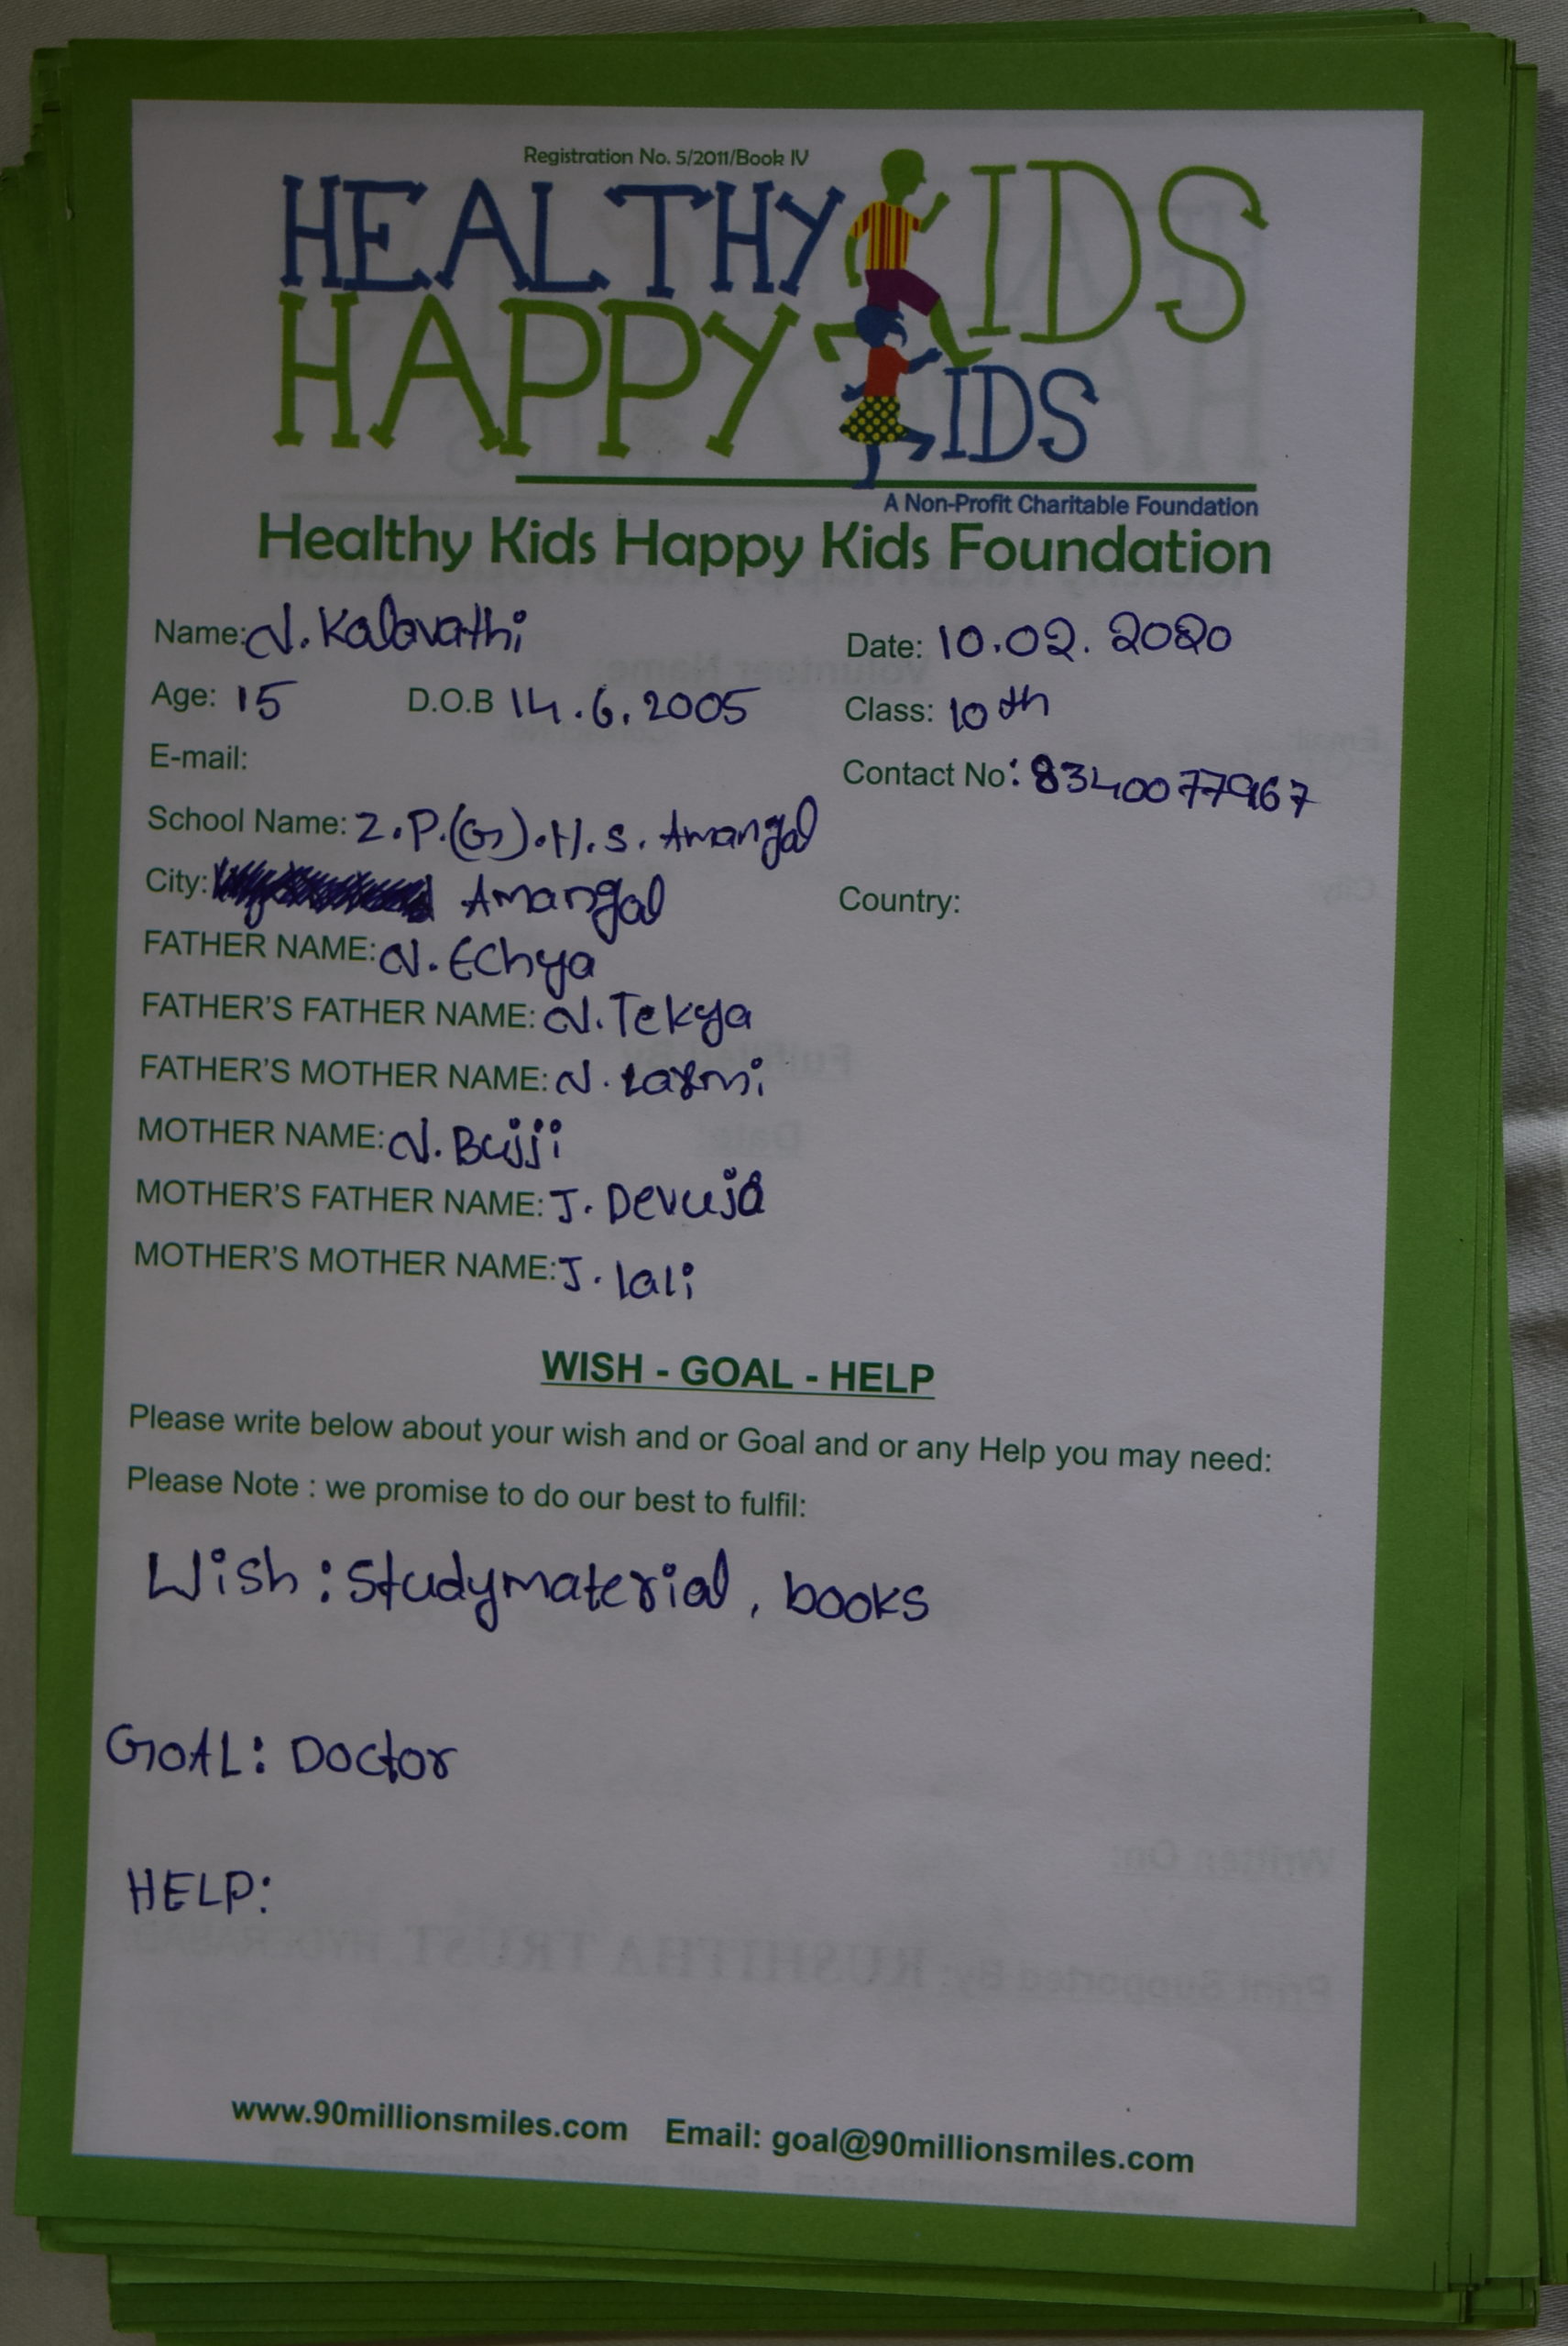 Registration No. 5/2011/Book IV
HEALTHY KIDS
HAPPY KIDS
A Non-Profit Charitable Foundation
Healthy Kids Happy Kids Foundation
Name: N. Kalavathi Date: 10.02.2020
Age: 15 D.O.B 14.6.2005 Class: 10th
E-mail: Contact No: 8340077967
School Name: Z.P.(G).H.S. Amangal
City: Amangal Country:
FATHER NAME: N. Echya
FATHER'S FATHER NAME: N. Tekya
FATHER'S MOTHER NAME: N. Laxmi
MOTHER NAME: N. Bujji
MOTHER'S FATHER NAME: J. Devuja
MOTHER'S MOTHER NAME: J. lali
WISH - GOAL - HELP
Please write below about your wish and or Goal and or any Help you may need:
Please Note : we promise to do our best to fulfil:
Wish : Studymaterial, books
GOAL: Doctor
HELP:
www.90millionsmiles.com Email: goal@90millionsmiles.com